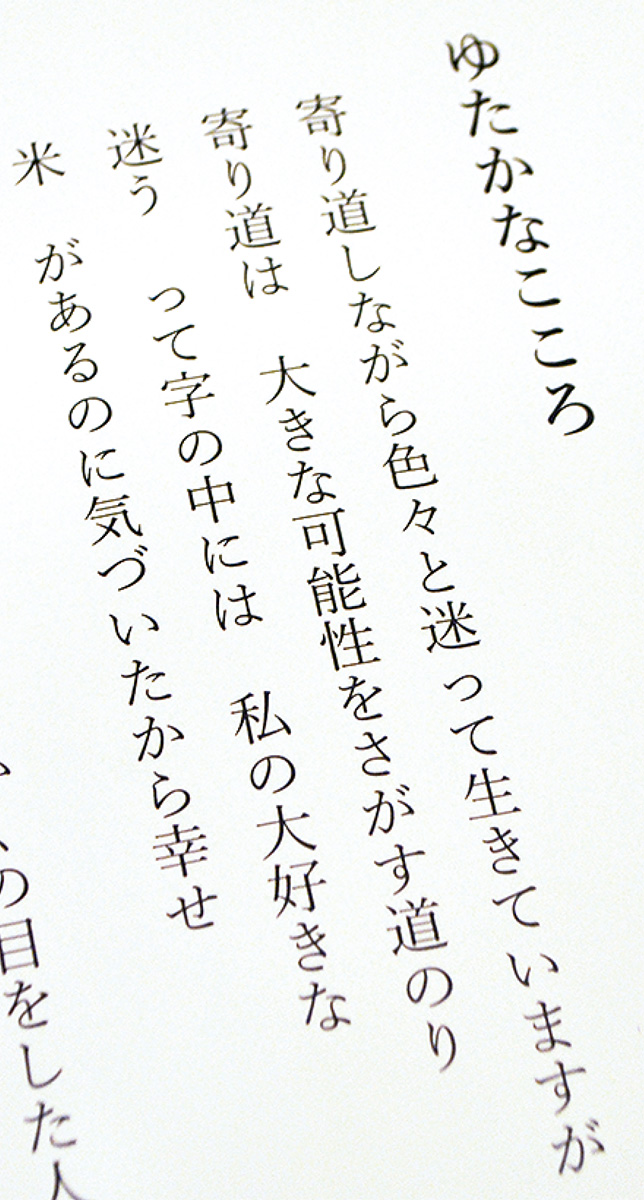 ゆたかなこころ
寄り道しながら色々と迷って生きていますが
寄り道は　大きな可能性をさがす道のり
迷う　って字の中には　私の大好きな
米　があるのに気づいたから幸せ
の目をした人